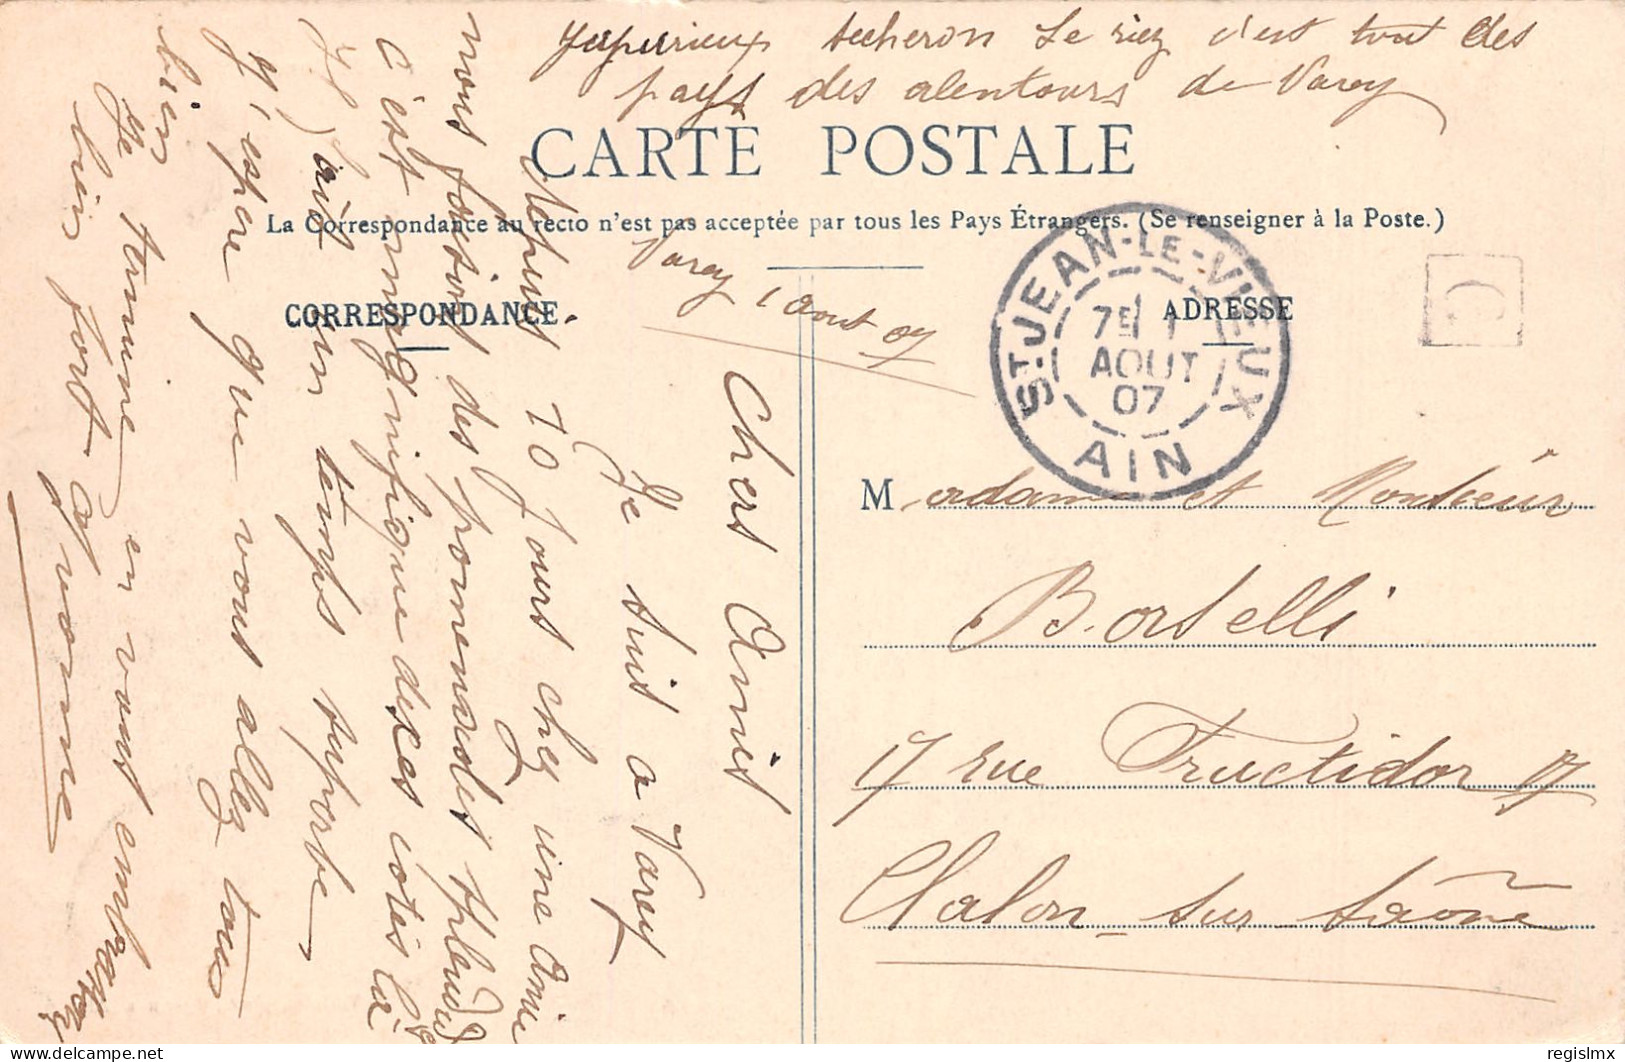 Jujurieux secheron Le riez c'est tout des
pays des alentours de Varey
CARTE POSTALE
La Correspondance au recto n'est pas acceptée par tous les Pays Étrangers. (Se renseigner à la Poste.)
CORRESPONDANCE
ADRESSE
Varey 1 Aout 07
ST JEAN-LE-VIEUX
7E 1
AOUT
07
AIN
Chers Amis
Je suis a Varey
depuis 10 jours chez une Amie
nous faisons des promenades splendid
c'est magnifique de ces cotés là
air bon temps superbe
J'espere que vous allez tous
bien
Je termine en vous embrassant
bien fort Yvonne
Madame et Monsieur
Borselli
17 rue Fructidor 17
Chalon-sur-Saône
regislmx